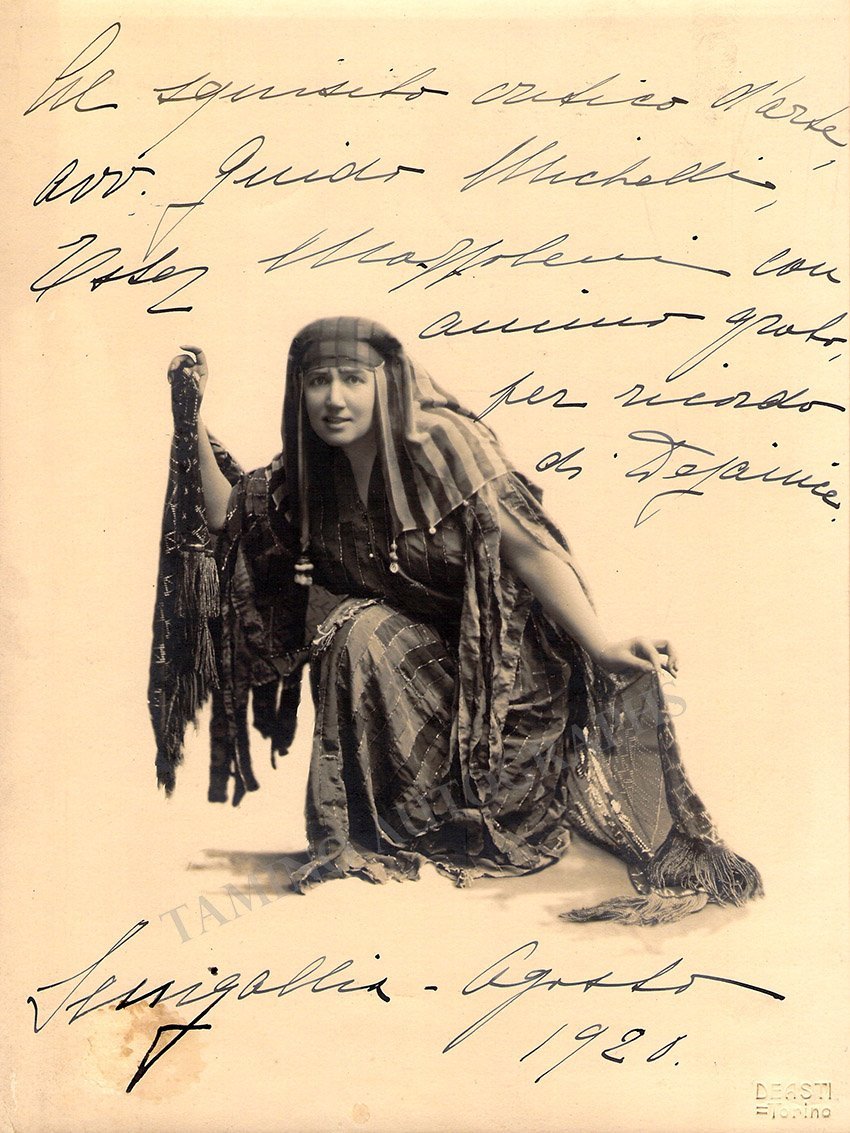 Al squisito critico d'arte,
avv. Guido Michelli,
Ester Mazzoleni con
animo grato,
per ricordo
di Dejanice.
TAMINO AUTOGRAPHS
Senigallia - Agosto
1920.
DEASTI
=Torino